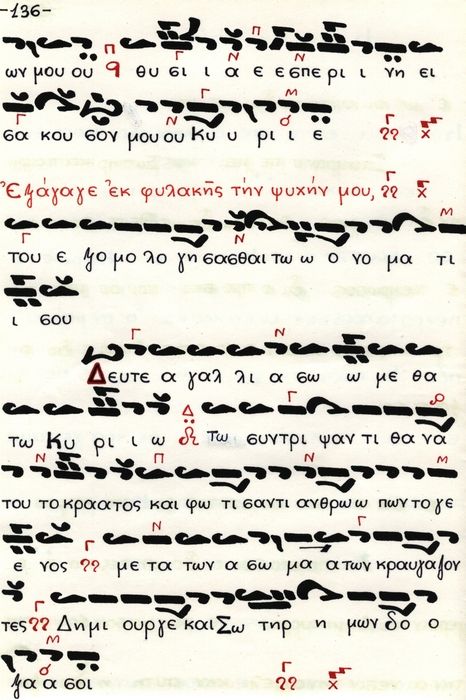 -136-
ων μου ου θυ σι ι α ε ε σπε ρι ι νη ει
σα κου σον μου ου Κυ υ ρι ι ε
Ἐξάγαγε ἐκ φυλακῆς τήν ψυχήν μου,
του ε ξο μο λο γη σασθαι τω ω ο νο μα τι
ι σου
Δευτε α γαλ λι α σω ω με θα
τω Κυ ρι ι ω τω συντρι ψαν τι θα να
του το κρααατος και φω τι σαντι ανθρω ω πων το γε
ε νος με τα των α σω μα α των κραυγαζον
τες Δημι ουργε και Σω τηρ η μων δο ο
ξα α σοι